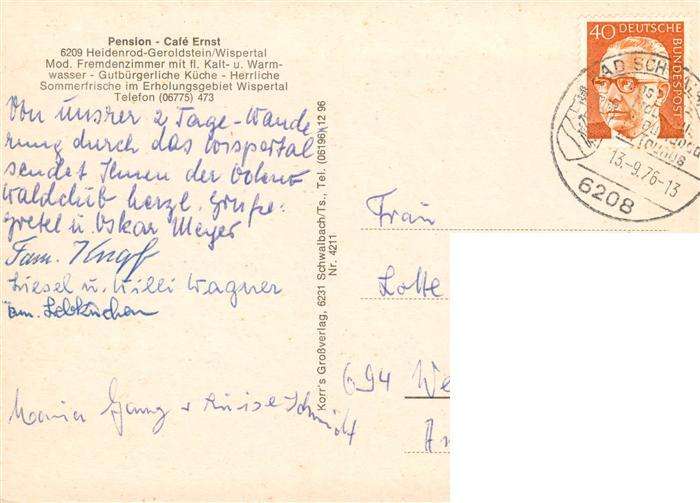 Pension - Café Ernst
6209 Heidenrod-Geroldstein/Wispertal
Mod. Fremdenzimmer mit fl. Kalt- u. Warm-
wasser - Gutbürgerliche Küche - Herrliche
Sommerfrische im Erholungsgebiet Wispertal
Telefon (06775) 473
Von unsrer 2 Tage-Wande
rung durch das Wispertal
sendet Ihnen der Odenw
waldclub herzl. Grüße:
Gretel u. Oskar Meyer
Fam. Knapp
Liesel u. Willi Wagner
Fam. Lebkuchen
Maria Gang + Luise Schmidt
Korr's Großverlag, 6231 Schwalbach/Ts., Tel. (06196) 12 96
Nr. 4211
40 DEUTSCHE
BUNDESPOST
BAD SCHWAL
TAUNUS
13.-9.76-13
6208
Frau
Lotte
694 We